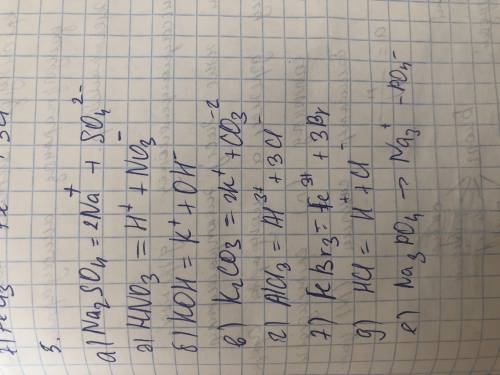 3.
а) Na₂SO₄ = 2Na⁺ + SO₄²⁻
б) HNO₃ = H⁺ + NO₃⁻
б) KOH = K⁺ + OH⁻
в) K₂CO₃ = 2K⁺ + CO₃⁻²
г) AlCl₃ = Al³⁺ + 3Cl⁻
г) FeBr₃ = Fe³⁺ + 3Br⁻
д) HCl = H⁺ + Cl⁻
е) Na₃PO₄ → Na₃⁺ - PO₄⁻